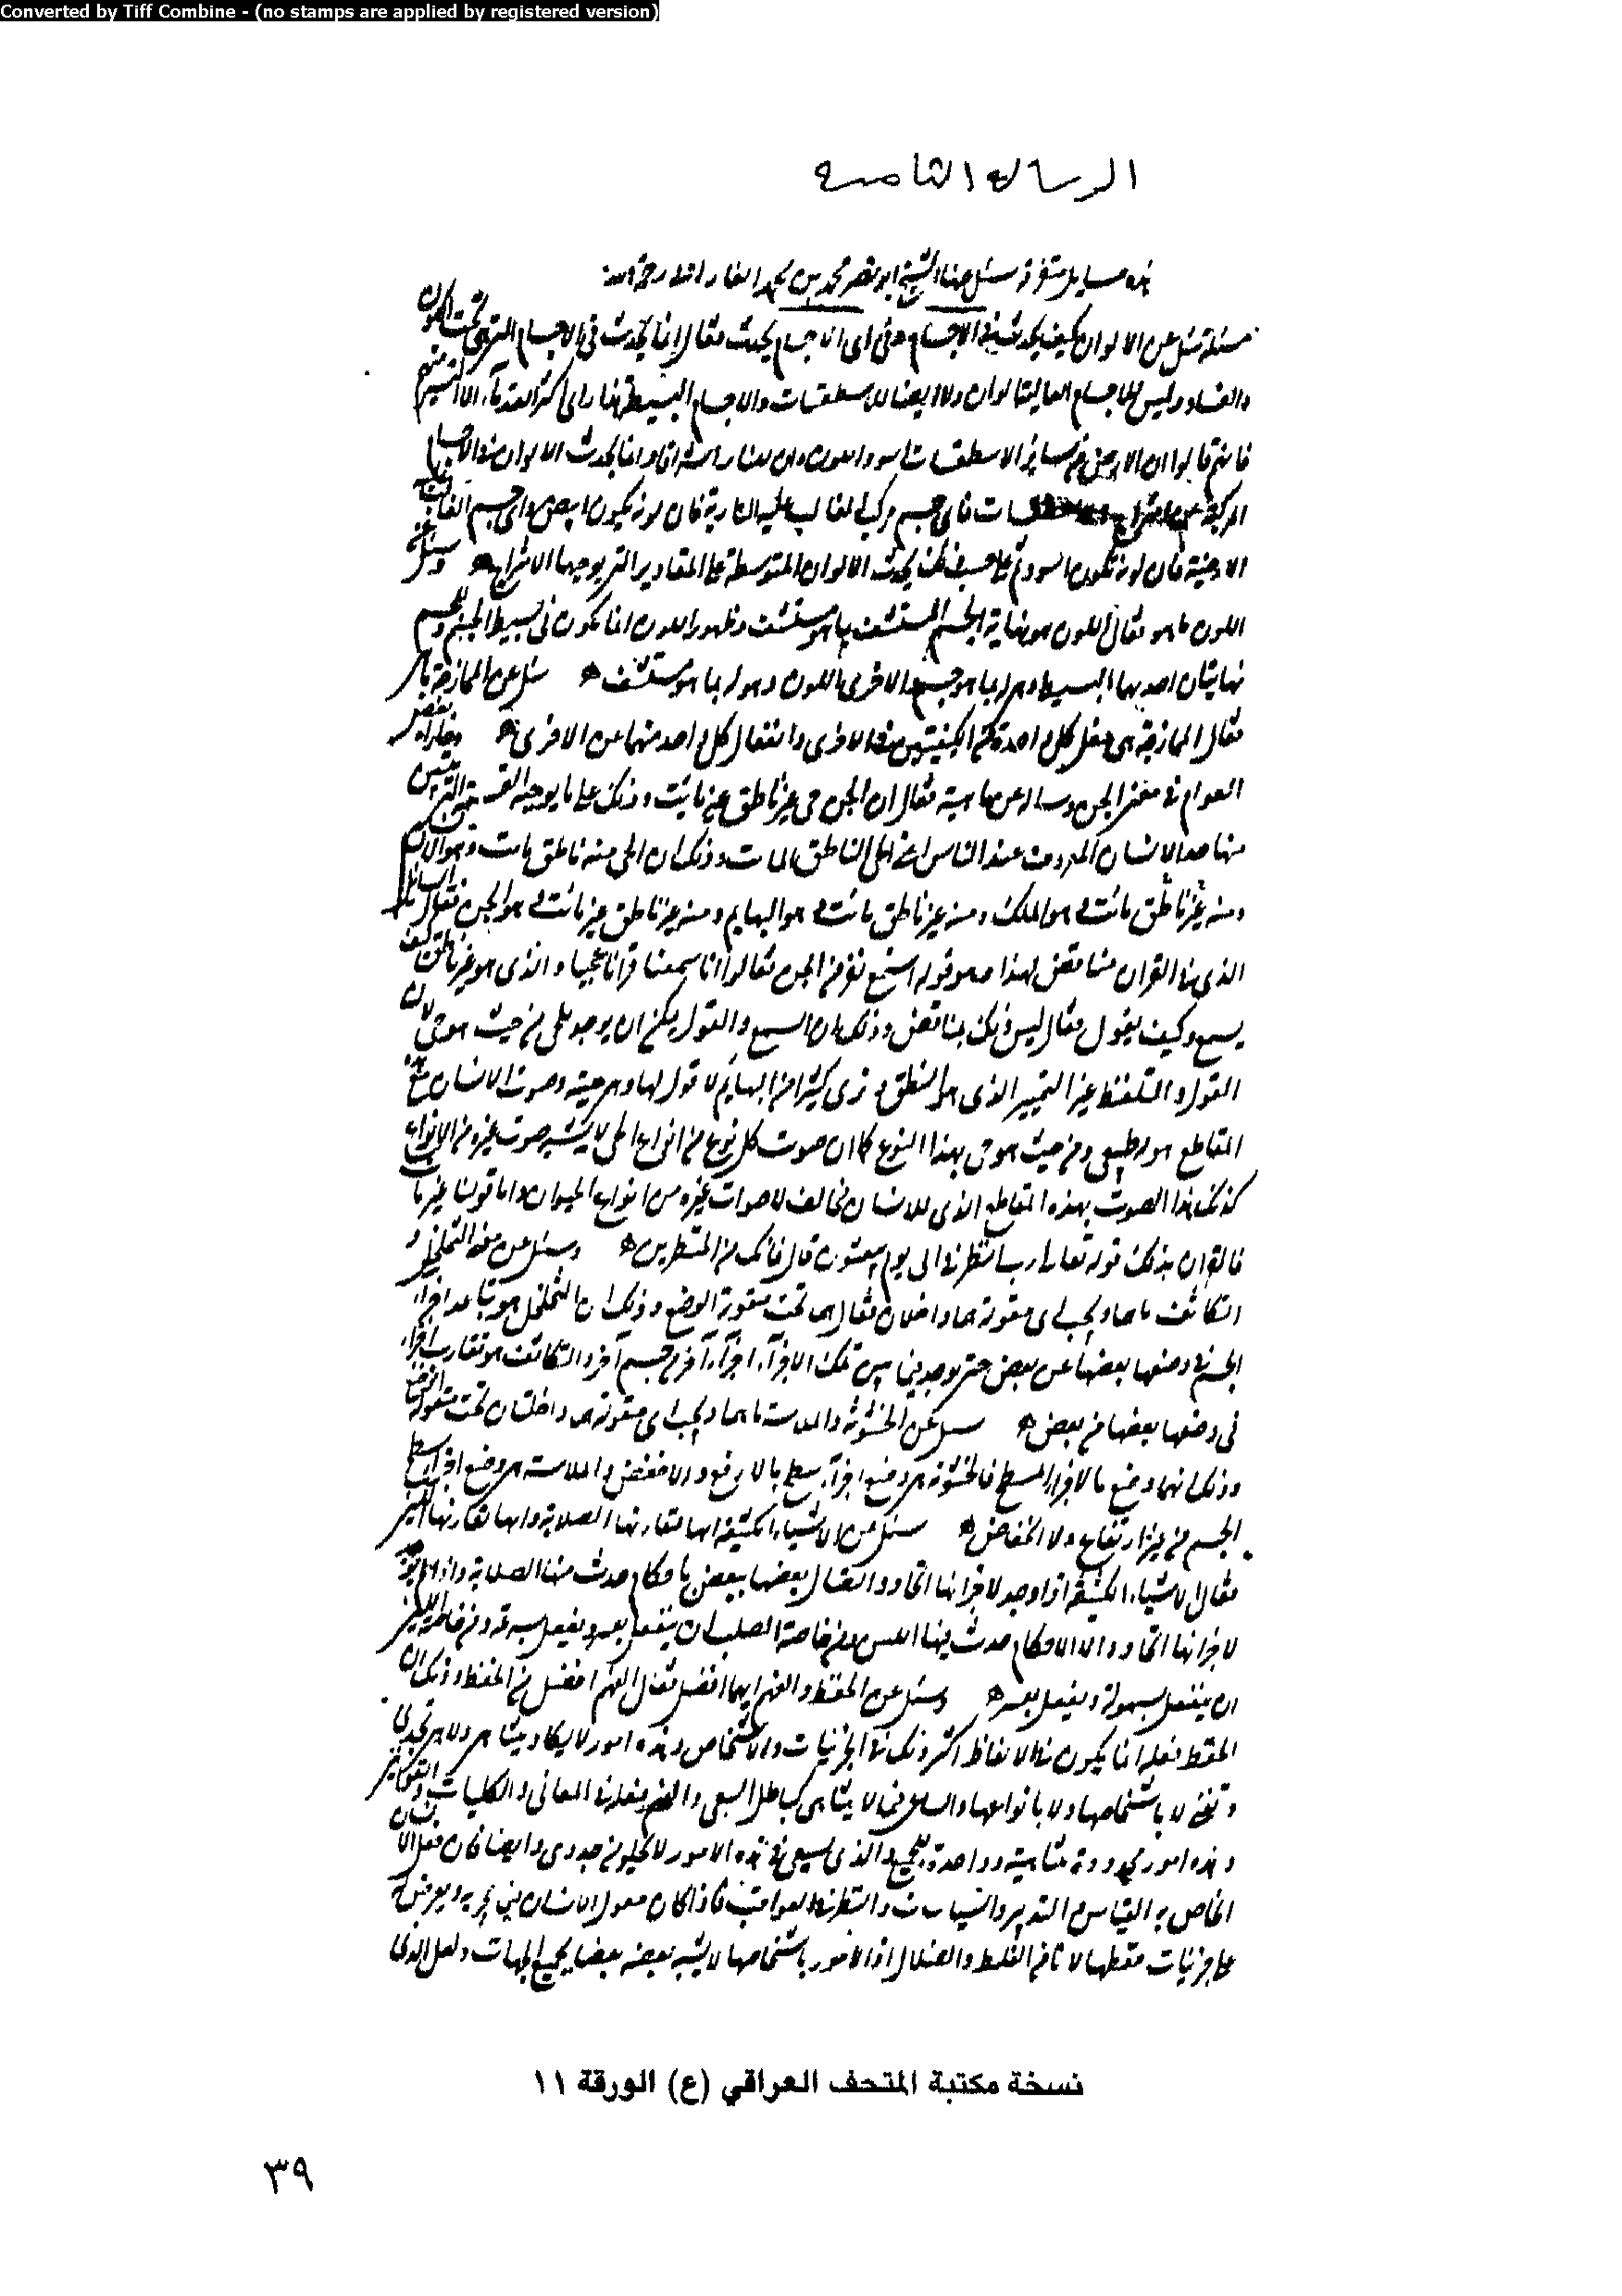 Converted by Tiff Combine - (no stamps are applied by registered version)
الرسالة الثامنة
هذه مسايل متفرقة سئل عنها الشيخ ابو نصر محمد بن محمد الفارابى رحمه الله
مسئلة سئل عن الالوان كيف يحدث فى الاجسام وفى اى الاجسام يحدث فقال انما يحدث فى الاجسام التى هى تحت الكون
والفساد وليس للاجسام العالية الوان ولا ايضا للاسطقسات والاجسام البسيطة هذا راى اكثر القدماء الا اليسير منهم
فانهم قالوا ان الارض من سائر الاسطقسات اسود اللون وان للنار اشراقا وانما يحدث الالوان فى الاجسام
المركبة عن امتزاج الاسطقسات فاى جسم مركب الغالب عليه النارية فان لونه يكون ابيض واى جسم الغالب
الارضية فان لونه يكون اسود ثم على حسب ذلك يحدث الالوان المتوسطة على المقادير التى يوجبها الامتزاج وسئل عن
اللون ما هو فقال اللون هو نهاية الجسم المستشف بما هو مستشف وظهور اللون انما يكون فى بسيط الجسم وللجسم
نهايتان احديهما البسيط وهو له بما هو جسم والاخرى اللون وهو له بما هو مستشف سئل عن الممازجة ما هى
فقال الممازجة هى فعل كل واحدة من الكيفيتين فى الاخرى وانفعال كل واحد منهما عن الاخرى
العوام فى معنى الجن وساله عن ماهيته فقال ان الجن حى غير ناطق غير مائت وذلك على ما يوجبه القسمة التى يتبين
منها حد الانسان المعروف عند الناس اعنى الحى الناطق المائت وذلك ان الحى منه ناطق مائت وهو الانسان
ومنه ناطق غير مائت وهو الملك ومنه غير ناطق مائت وهو البهايم ومنه غير ناطق غير مائت وهو الجن فقال السائل
الذى فى القران مناقض لهذا وهو قوله استمع نفر من الجن فقالوا انا سمعنا قرانا عجبا والذى هو غير ناطق كيف
يسمع وكيف يقول فقال ليس ذلك بمناقض وذلك ان السمع والقول يمكن ان يوجد للحى من حيث هو حى لان
القول والتلفظ غير التمييز الذى هو النطق وترى كثيرا من البهايم لا قول لها وهى حية وصوت الانسان مع هذه
المقاطع هو له طبيعى من حيث هو حى بهذا النوع كما ان صوت كل نوع من انواع الحى لا يشبه صوت غيره من الانواع
كذلك هذا الصوت بهذه المقاطع الذى للانسان مخالف لاصوات غيره من انواع الحيوان واما قولنا غير مائت
فالقران يدل قوله تعالى رب انظرنى الى يوم يبعثون قال فانك من المنظرين وسئل عن معنى التخلخل و
التكاثف ما هما وتحت اى مقولة هما داخلان فقال هما تحت مقولة الوضع وذلك ان التخلخل هو تباعد اجزاء
الجسم فى وضعها بعضها عن بعض حتى يوجد فيما بين تلك الاجزاء اجزاء اخر من جسم آخر والتكاثف هو تقارب اجزاء
فى وضعها بعضها من بعض سئل عن الخشونة والملاسة ما هما وتحت اى مقولة هما داخلتان تحت مقولة الوضع
وذلك انهما وضع ما لاجزاء السطح فالخشونة هى وضع اجزاء سطح بالارفع والاخفض والملاسة هى وضع اجزاء سطح
الجسم من غير ارتفاع ولا انخفاض سئل عن الاشياء الكثيفة ايها تقارنها الصلابة وايها تقارنها اللين
فقال الاشياء الكثيفة اذا وجد لاجزائها اتحاد والتصال بعضها ببعض باحكام حدث منها الصلابة واذا لم يوجد
لاجزائها اتحاد الاحكام حدث فيها اللين ومن خاصة الصلب ان ينفعل بعسر ويفعل بسرعة ومن خاصة اللين
ان ينفعل بسهولة ويفعل بعسر وسئل عن الحفظ والفهم ايهما افضل فقال الفهم افضل من الحفظ وذلك ان
الحفظ فعله انما يكون فى الالفاظ اكثر وذلك فى الجزئيات والاشخاص وهذه امور لا يكاد يتناهى ولا هى تجدى
وتغنى لا باشخاصها ولا بانواعها والساعى فيما لا يتناهى كباطل السعى والفهم فعله فى المعانى والكليات والقوانين
وهذه امور محدودة متناهية وواحدة للجميع والذى يسعى فى هذه الامور لا يخلو من جدوى وايضا فان فعل الانسان
الخاص به القياس والتدبير والسياسات والنظر فى العواقب فاذا كان معول الانسان فيما يجربه ويعرض له
على جزئيات حفظها لا تامن الغلط والضلال اذ الامور باشخاصها لا يشبه بعضه بعضا بجميع الجهات ولعل الذى
نسخة مكتبة المتحف العراقي (ع) الورقة ١١
٣٩